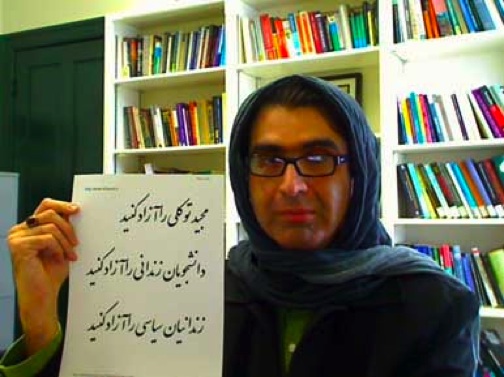 مجید توکلی را آزاد کنید
دانشجویان زندانی را آزاد کنید
زندانیان سیاسی را آزاد کنید